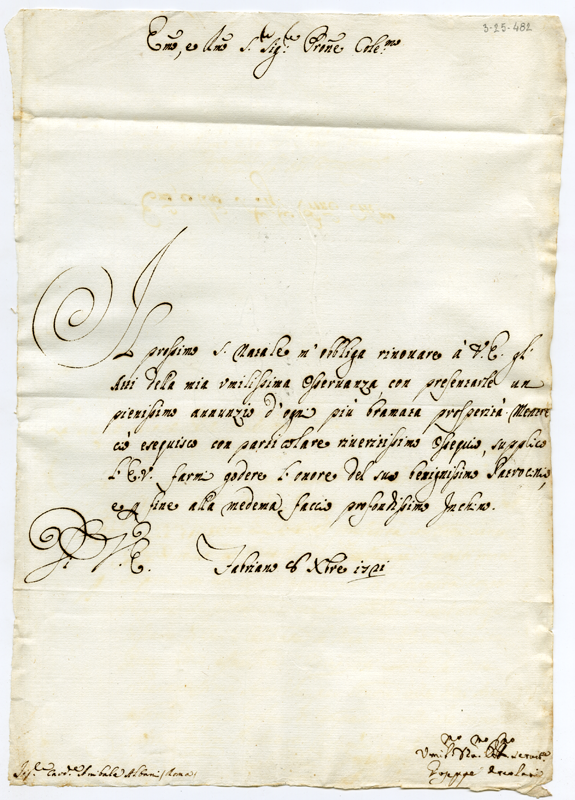 3-25-482
Emo, e Rmo Sr. Sigr. Prone Colmo
Il prossimo S. Natale m'obbliga rinovare à V.E. gl'
Atti della mia umilissima Osservanza con presentarle un
pienissimo annunzio d'ogni più bramata prosperità. Mentre
ciò eseguisco con particolare riveritissimo Ossequio, supplico
l'E.V. farmi godere l'onore del suo benignissimo Patrocinio,
e fine alla medema faccio profondissimo Inchino.
Di V.E. Fabriano 8 Xbre 1721
Umilmo Devmo
Sigr. Cardle Annibale Albani (Roma) Giuseppe